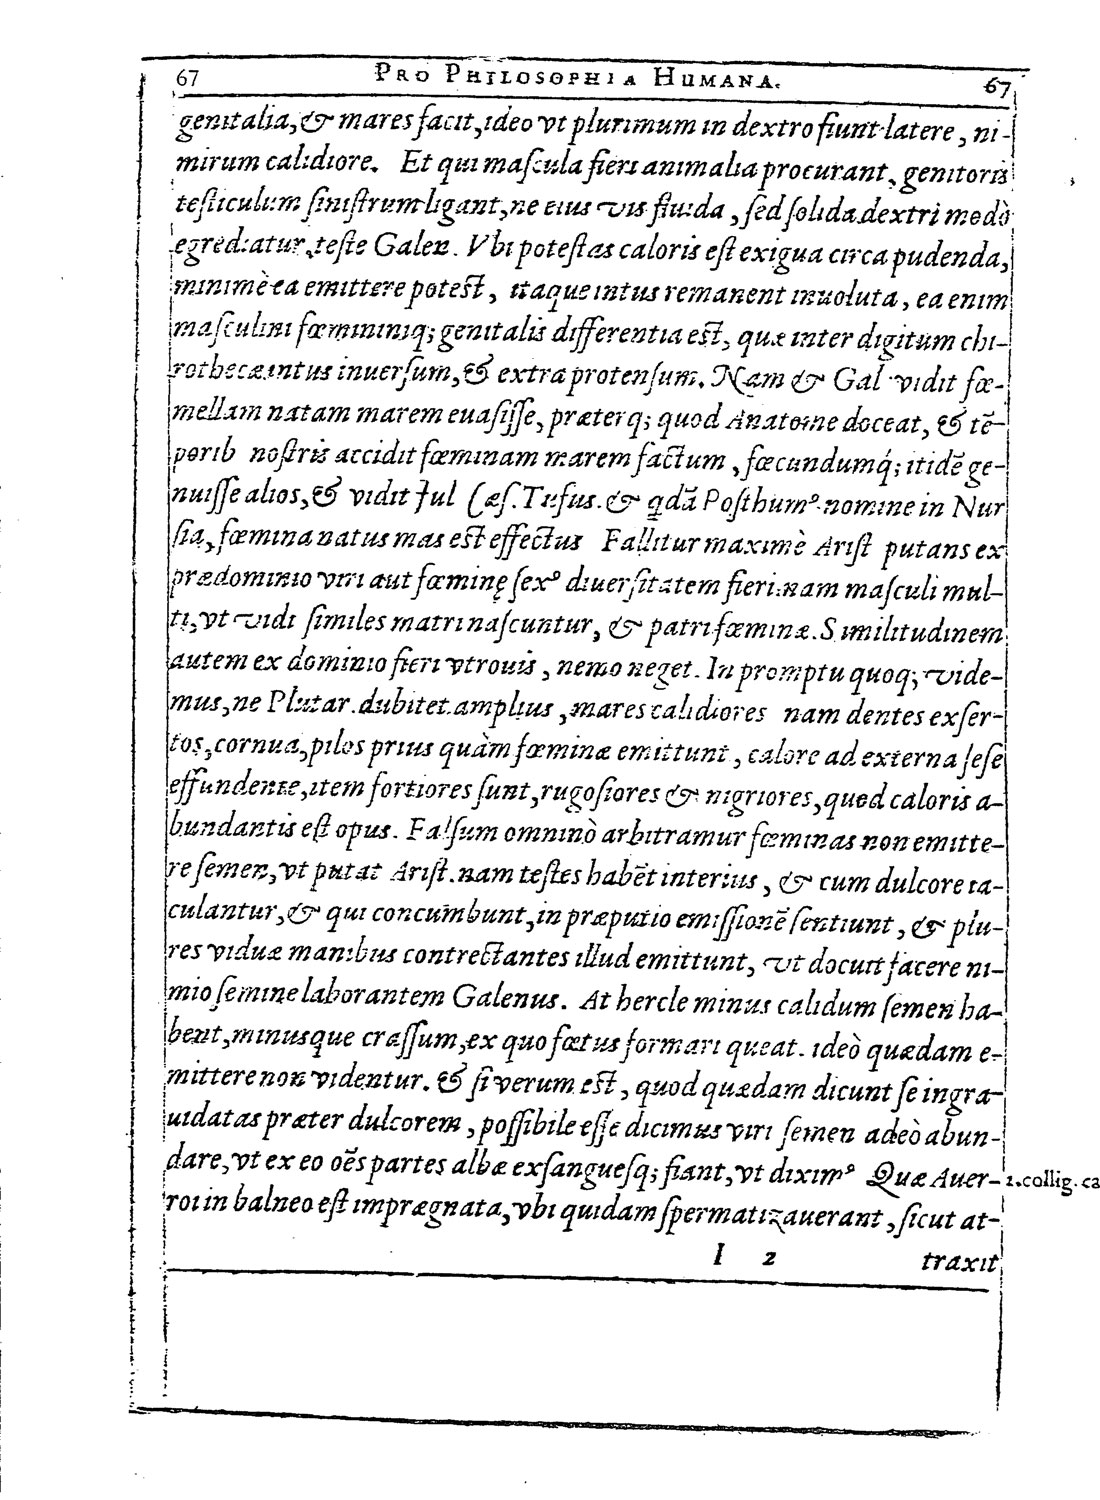 67 PRO PHILOSOPHIA HUMANA. 67
genitalia, & mares facit, ideo vt plurimum in dextro fiunt latere, ni-
mirum calidiore. Et qui maſcula fieri animalia procurant, genitoris
teſticulum ſiniſtrum ligant, ne eius vis fluida, ſed ſolida dextri modò
egrediatur, teſte Galen. Vbi poteſtas caloris eſt exigua circa pudenda,
minimè ea emittere poteſt, itaque intus remanent inuoluta, ea enim
maſculini fœmininiq; genitalis differentia eſt, quæ inter digitum chi-
rothecæ intus inuerſum, & extra protenſum. Nam & Gal vidit fœ-
mellam natam marem euaſiſſe, præterq; quod Anatome doceat, & tē-
porib nostris accidit fœminam marem factum, fœcundumq́; itidē ge-
nuiſſe alios, & vidit Iul Cæſ. Tufus. & qdā Poſthumꝰ nomine in Nur
ſia, fœmina natus mas eſt effectus Fallitur maximè Ariſt putans ex
prædominio viri aut fœminę ſexꝰ diuerſitatem fieri. nam maſculi mul-
ti, vt vidi ſimiles matri naſcuntur, & patri fœminæ. Similitudinem
autem ex dominio fieri vtrouis, nemo neget. In promptu quoq; vide-
mus, ne Plutar. dubitet amplius, mares calidiores nam dentes exſer-
tos, cornua, pilos prius quàm fœminæ emittunt, calore ad externa ſeſe
effundente, item fortiores ſunt, rugoſiores & nigriores, quod caloris a-
bundantis eſt opus. Falſum omninò arbitramur fœminas non emitte-
re ſemen, vt putat Ariſt. nam teſtes habēt interius, & cum dulcore ia-
culantur, & qui concumbunt, in præputio emiſſionē ſentiunt, & plu-
res viduæ manibus contrectantes illud emittunt, vt docuit facere ni-
mio ſemine laborantem Galenus. At hercle minus calidum ſemen ha-
bent, minusque craſſum, ex quo fœtus formari queat. ideò quædam e-
mittere non videntur. & ſi verum eſt, quod quædam dicunt ſe ingra-
uidatas præter dulcorem, poſſibile eſſe dicimus viri ſemen adeò abun-
dare, vt ex eo oēs partes albæ exſangueſq; fiant, vt diximꝰ Quæ Auer-
1. collig. ca
roi in balneo eſt imprægnata, vbi quidam ſpermatizauerant, ſicut at-
I 2 traxit